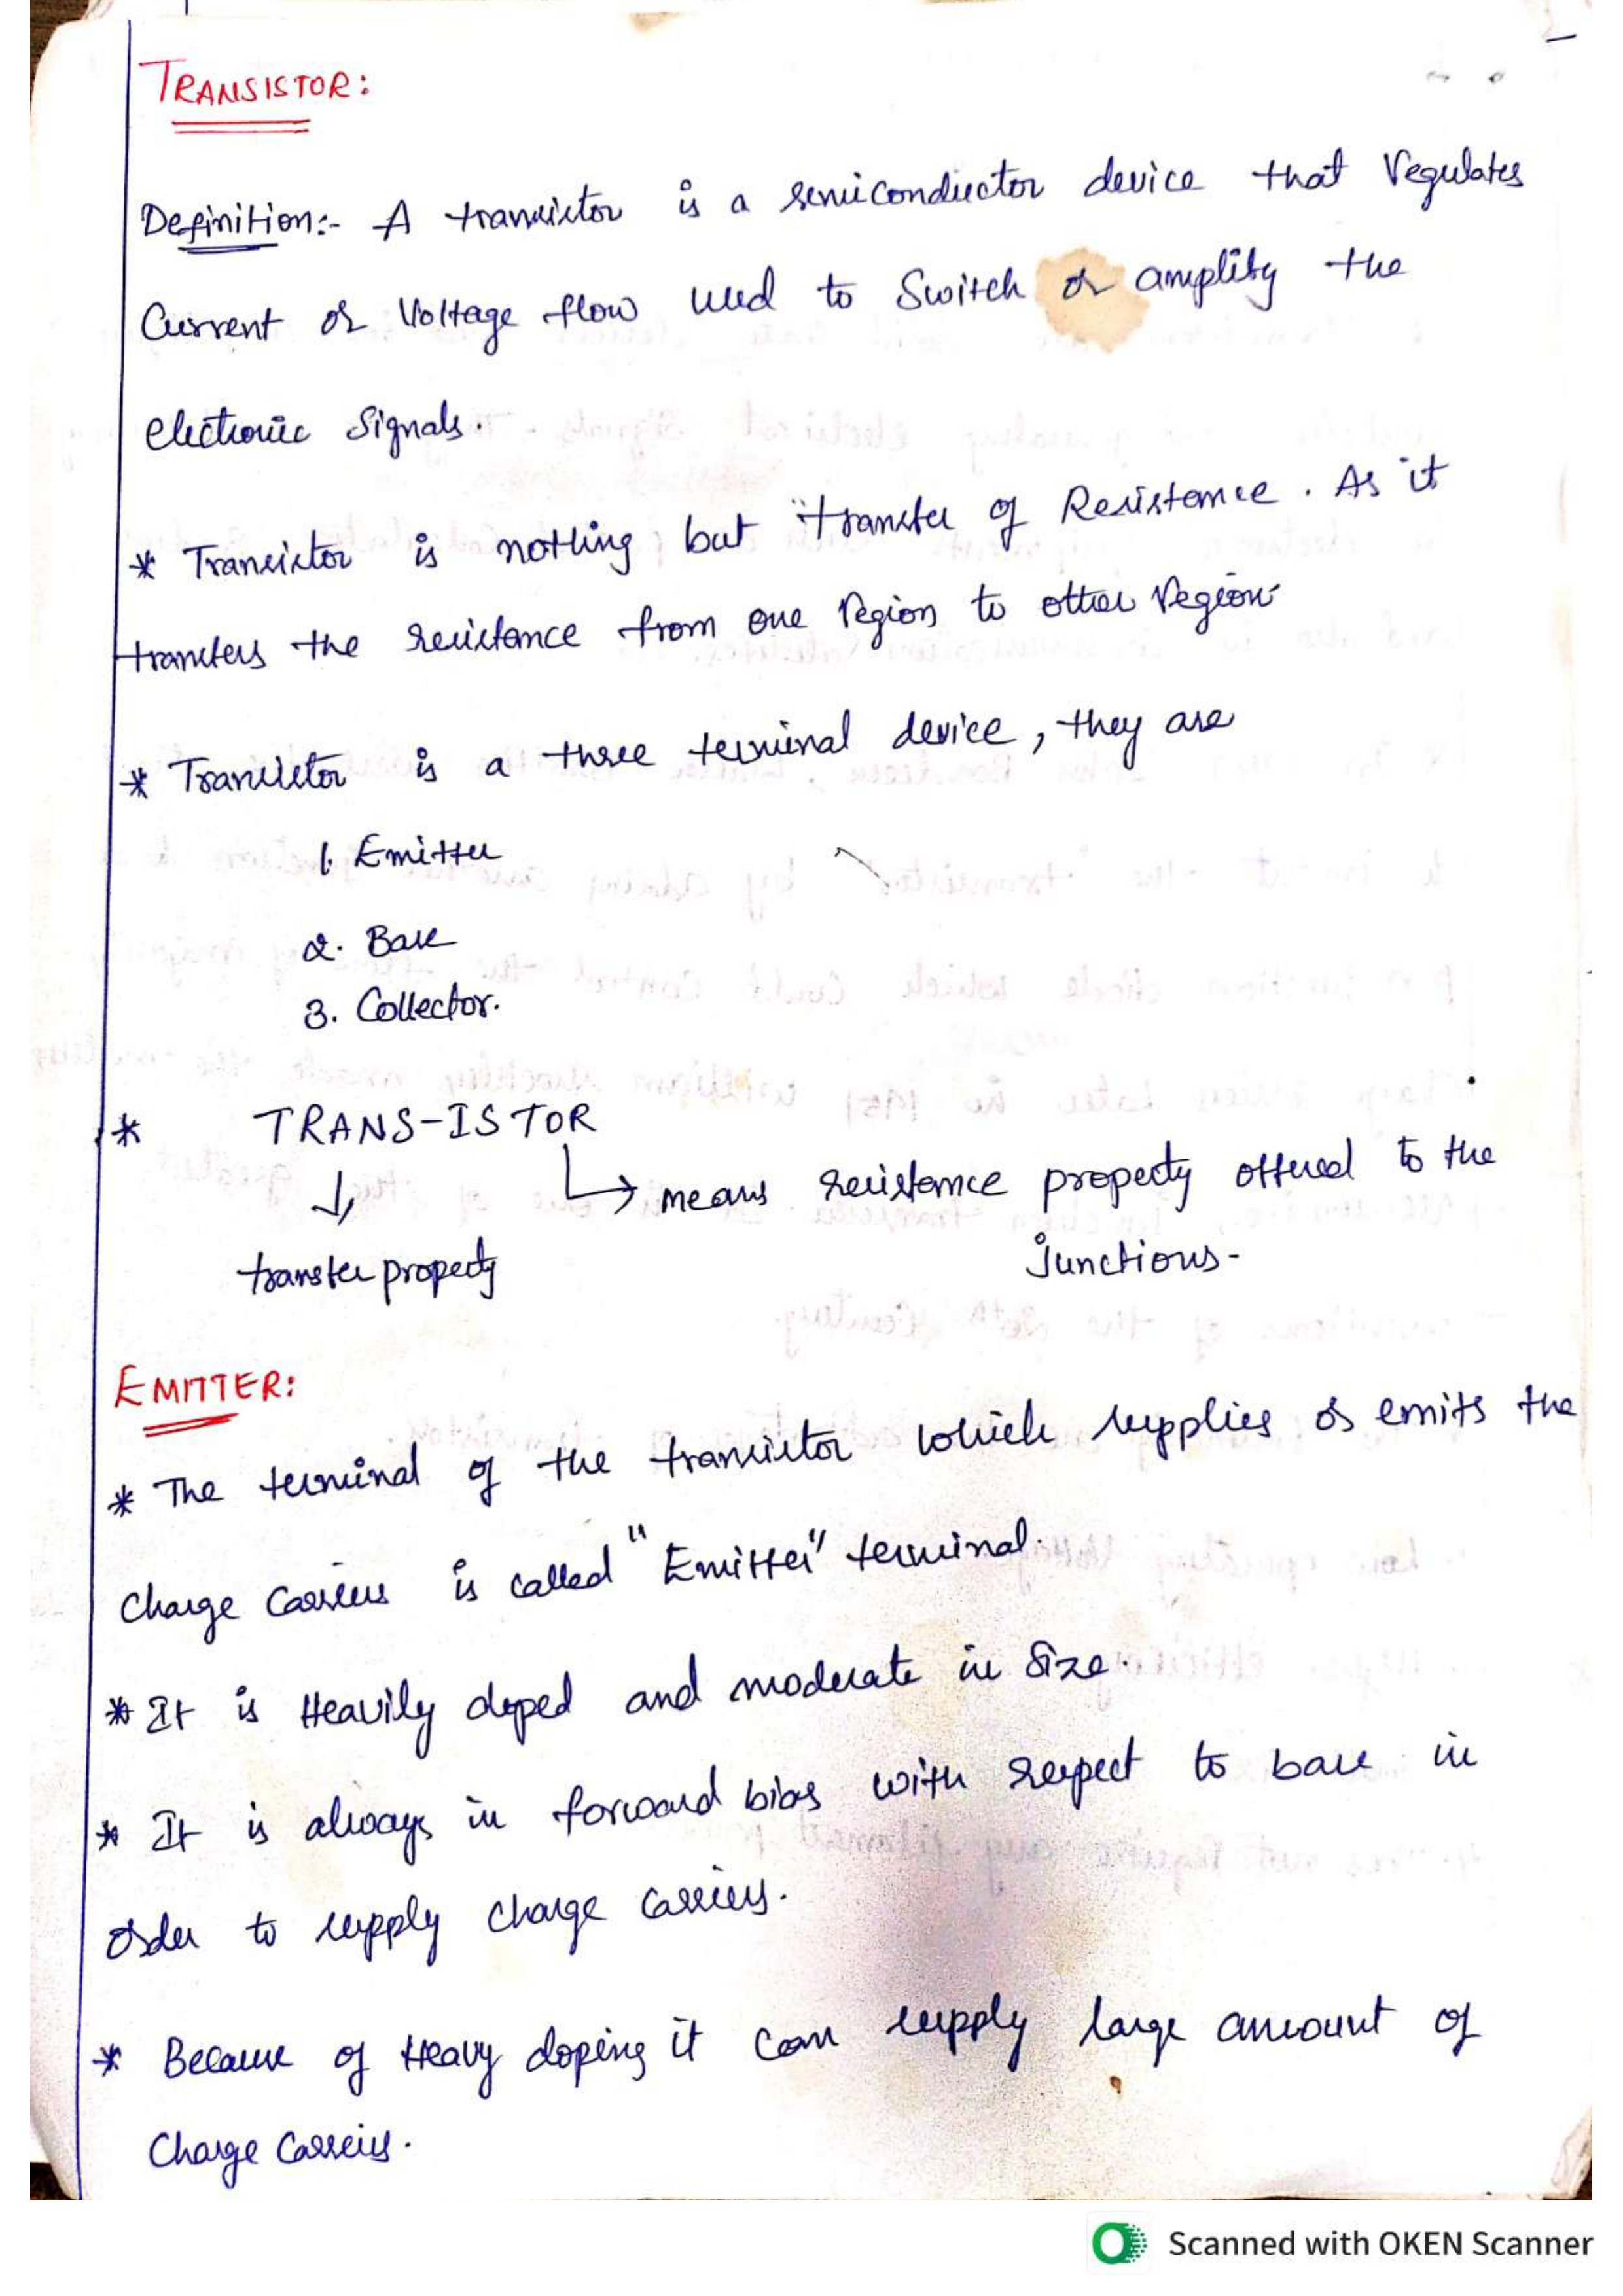 TRANSISTOR:
Definition:- A transistor is a semiconductor device that regulates
Current or Voltage flow used to Switch or amplify the
electronic Signals.
* Transistor is nothing but "transfer of Resistance. As it
transfers the resistance from one region to other region
* Transistor is a three terminal device, they are
1. Emitter
2. Base
3. Collector.
* TRANS-ISTOR
↓ ↳ means resistance property offered to the
transfer property junctions-
EMITTER:
* The terminal of the transistor which supplies or emits the
Charge Carriers is called "Emitter" terminal.
* It is Heavily doped and moderate in Size.
* It is always in forward bias with respect to base in
order to supply charge carriers.
* Because of Heavy doping it can supply large amount of
Charge Carreirs.
Scanned with OKEN Scanner